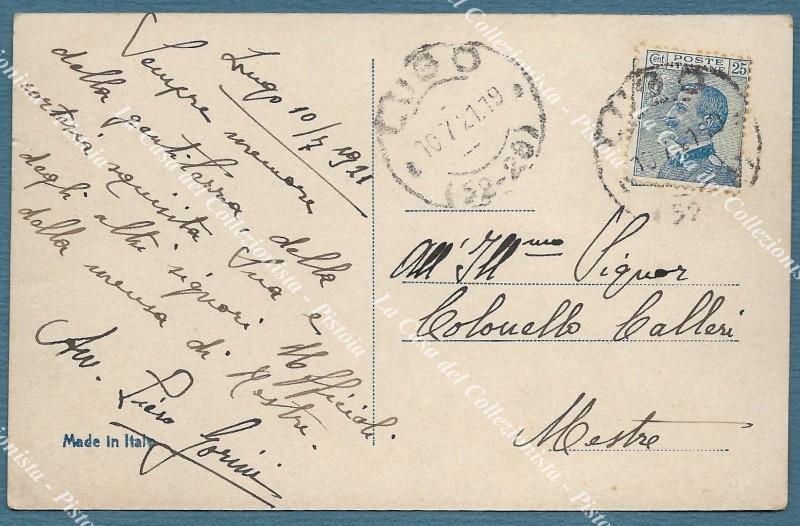 Lugo 10/7 1921
Sempre memore
della gentilezza, della
cortesia squisita Sua e
degli altri signori Ufficiali
della mensa di Mestre.
Avv. Piero Gorini
Made in Italy
LUGO
10.7.21.19
(52-28)
Cent. POSTE ITALIANE 25
All'Ill.mo Signor
Colonnello Calleri
Mestre
La Casa del Collezionista - Pistoia